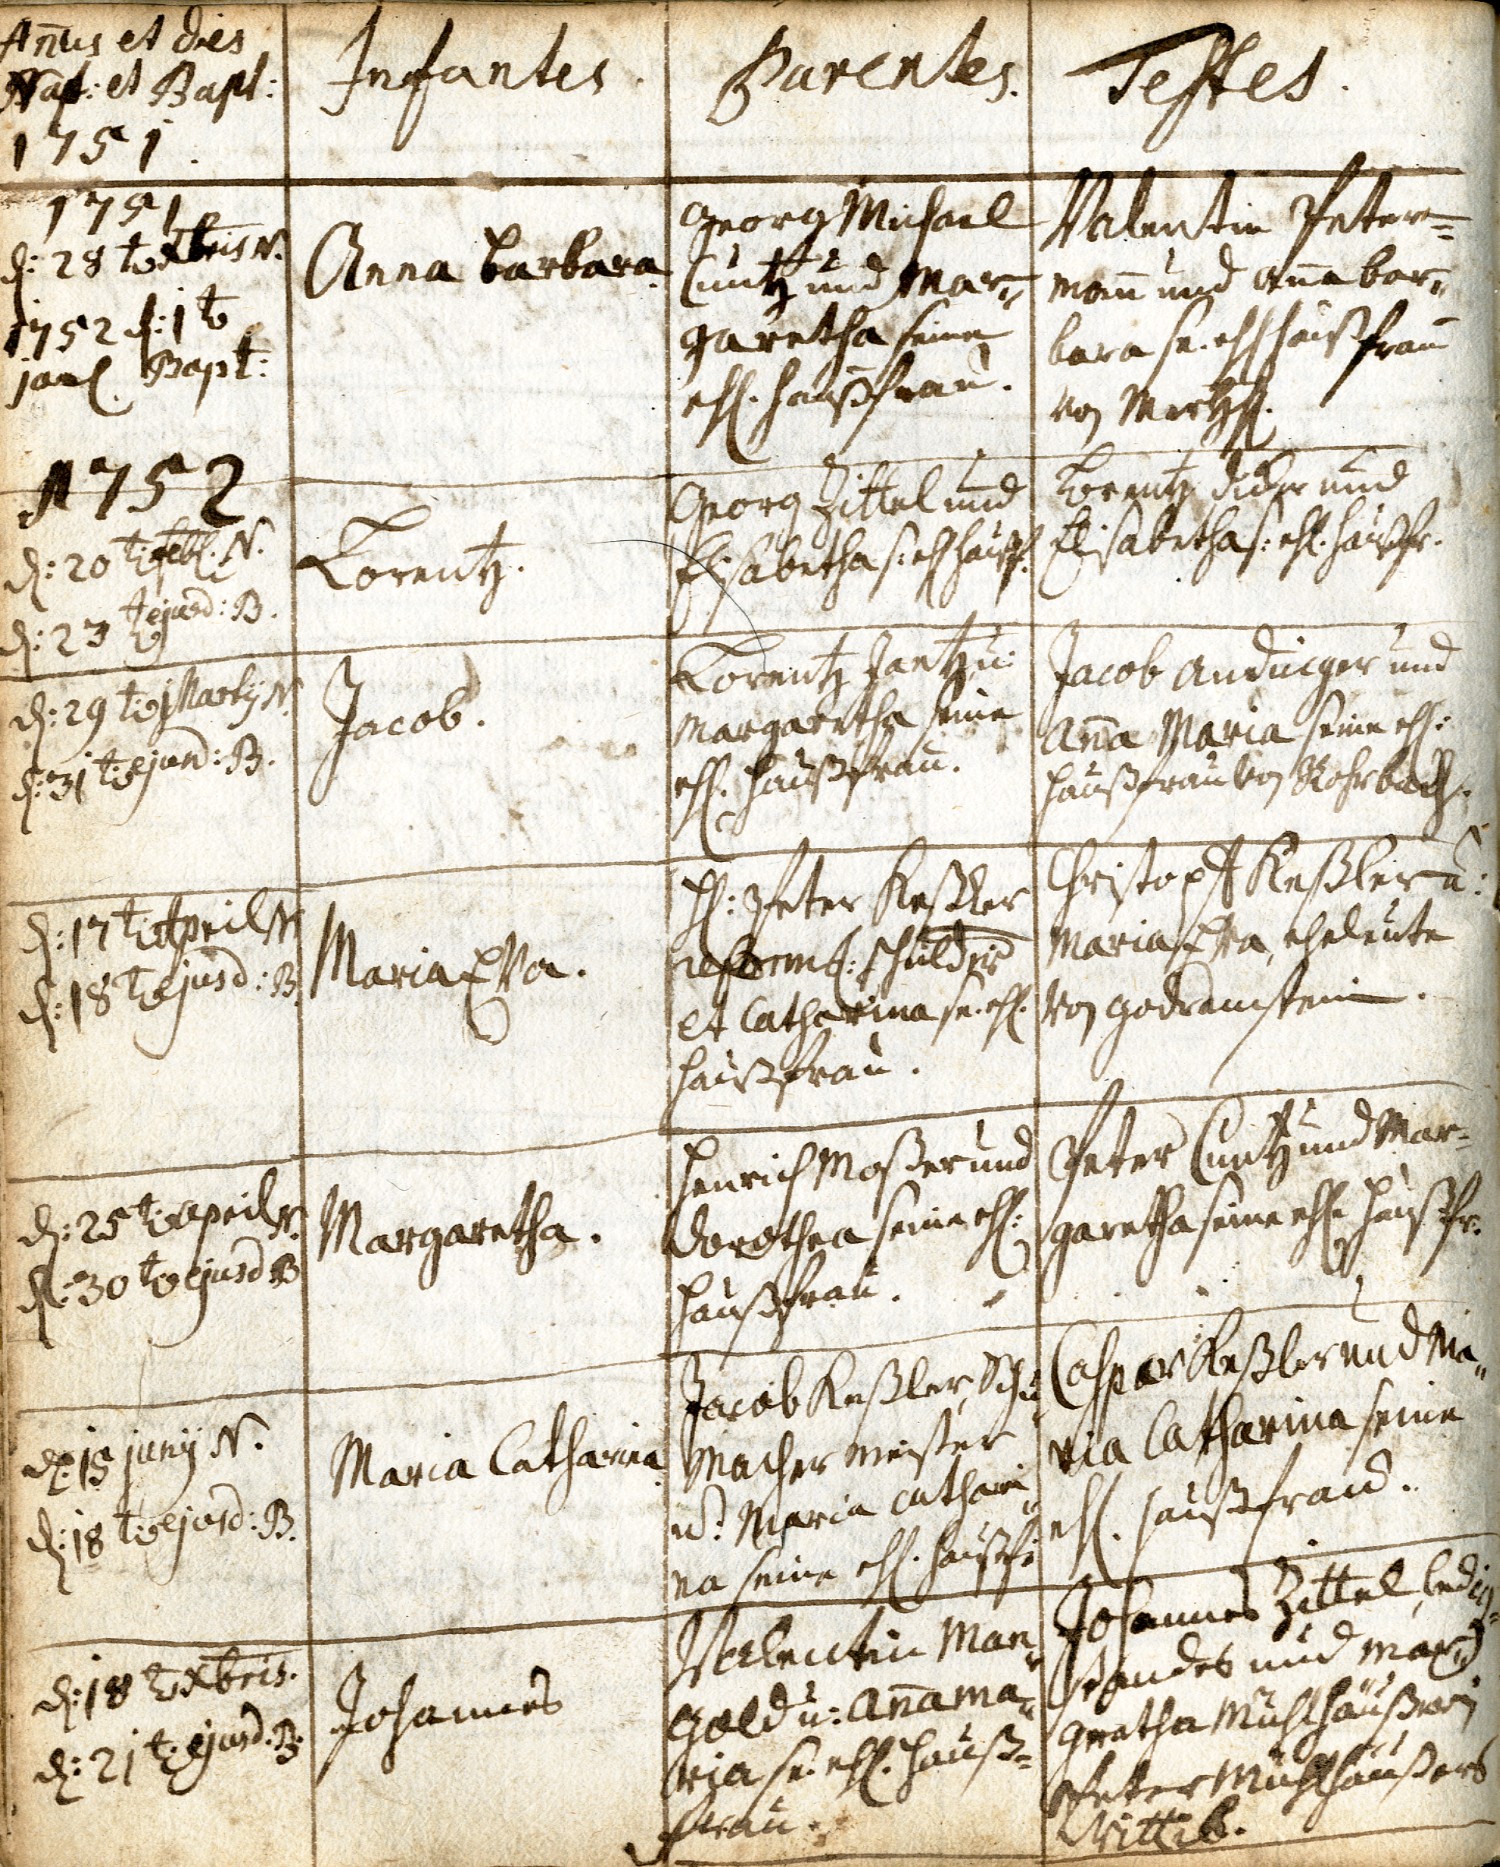 Añus et dies
Nat: et Bapt:
1751.
Infantes.
Parentes.
Testes.
1751
d: 28 t Xbris N.
1752 d: 1 t
jan. Bapt:
Anna Barbara.
Georg Michael
Cuntz und Mar=
garetha seine
ehl. haußfrau.
Valentin Peter=
mañ und Aña Bar=
bara se. ehl haußfrau
von
1752
d: 20 t. febr. N.
d: 23 t ejusd: B.
Lorentz.
Georg Zittel und
Elisabetha s: ehl haußf.
Lorentz und
Elisabetha s: ehl. haußfr.
d: 29 t. Martij N.
d: 31 t. ejusd: B.
Jacob.
Lorentz Jantz u:
Margaretha seine
ehl. haußfrau.
Jacob und
Aña Maria seine ehl:
haußfrau von Rohrbach.
d: 17 t. April N
d: 18 t. ejusd: B.
Maria Eva.
H: Peter Keßler
reform: schuldr
et Catharina se. ehl.
haußfrau.
Christoph Keßler u:
Maria Eva, eheleute
von Godramstein.
d: 25 t. April N.
d: 30 t. ejusd B
Margaretha.
Henrich Moßer und
Dorothea seine ehl:
haußfrau.
Peter Cuntz und Mar=
garetha seine ehl haußfr.
d: 15 junij N.
d: 18 t. ejusd: B.
Maria Catharina.
Jacob Keßler, Schu
macher meister
u: Maria Cathari=
na seine ehl. haußfr
Caspar Keßler und Ma=
ria Catharina seine
ehl. haußfrau.
d: 18 t. Xbris.
d: 21 t. ejusd. B.
Johannes
Valentin Man=
gold u: Aña Ma=
ria se. ehl. hauß=
frau.
Johannes Zittel, ledig=
standes und Mar=
gretha Mühlhäußerin
Peter Mühlhäußers
Wittib.